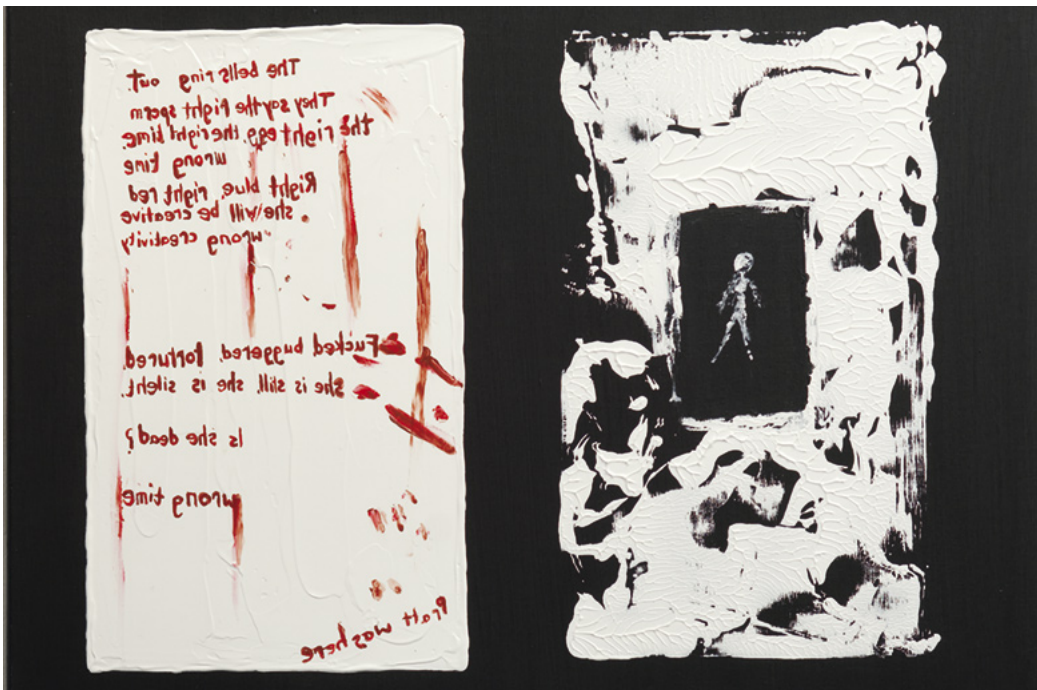 The bells ring out.
They say the right sperm
the right egg, the right time.
wrong time
Right blue, right red
she will be creative
wrong creativity
Fucked, buggered, tortured.
She is still, she is silent.
Is she dead?
wrong time
Pratt was here